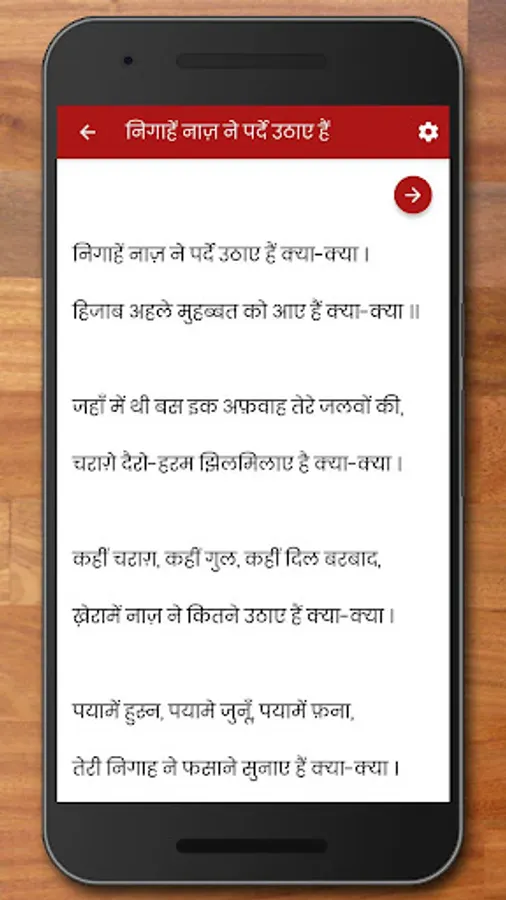 निगाहें नाज़ ने पर्दे उठाए हैं
निगाहें नाज़ ने पर्दे उठाए हैं क्या-क्या ।
हिजाब अहले मुहब्बत को आए हैं क्या-क्या ॥
जहाँ में थी बस इक अफ़वाह तेरे जलवों की,
चराग़े दैरो-हरम झिलमिलाए है क्या-क्या ।
कहीं चराग़, कहीं गुल, कहीं दिल बरबाद,
ख़ेरामें नाज़ ने कितने उठाए हैं क्या-क्या ।
पयामें हुस्न, पयामे जुनूँ, पयामें फ़ना,
तेरी निगाह ने फसाने सुनाए हैं क्या-क्या ।